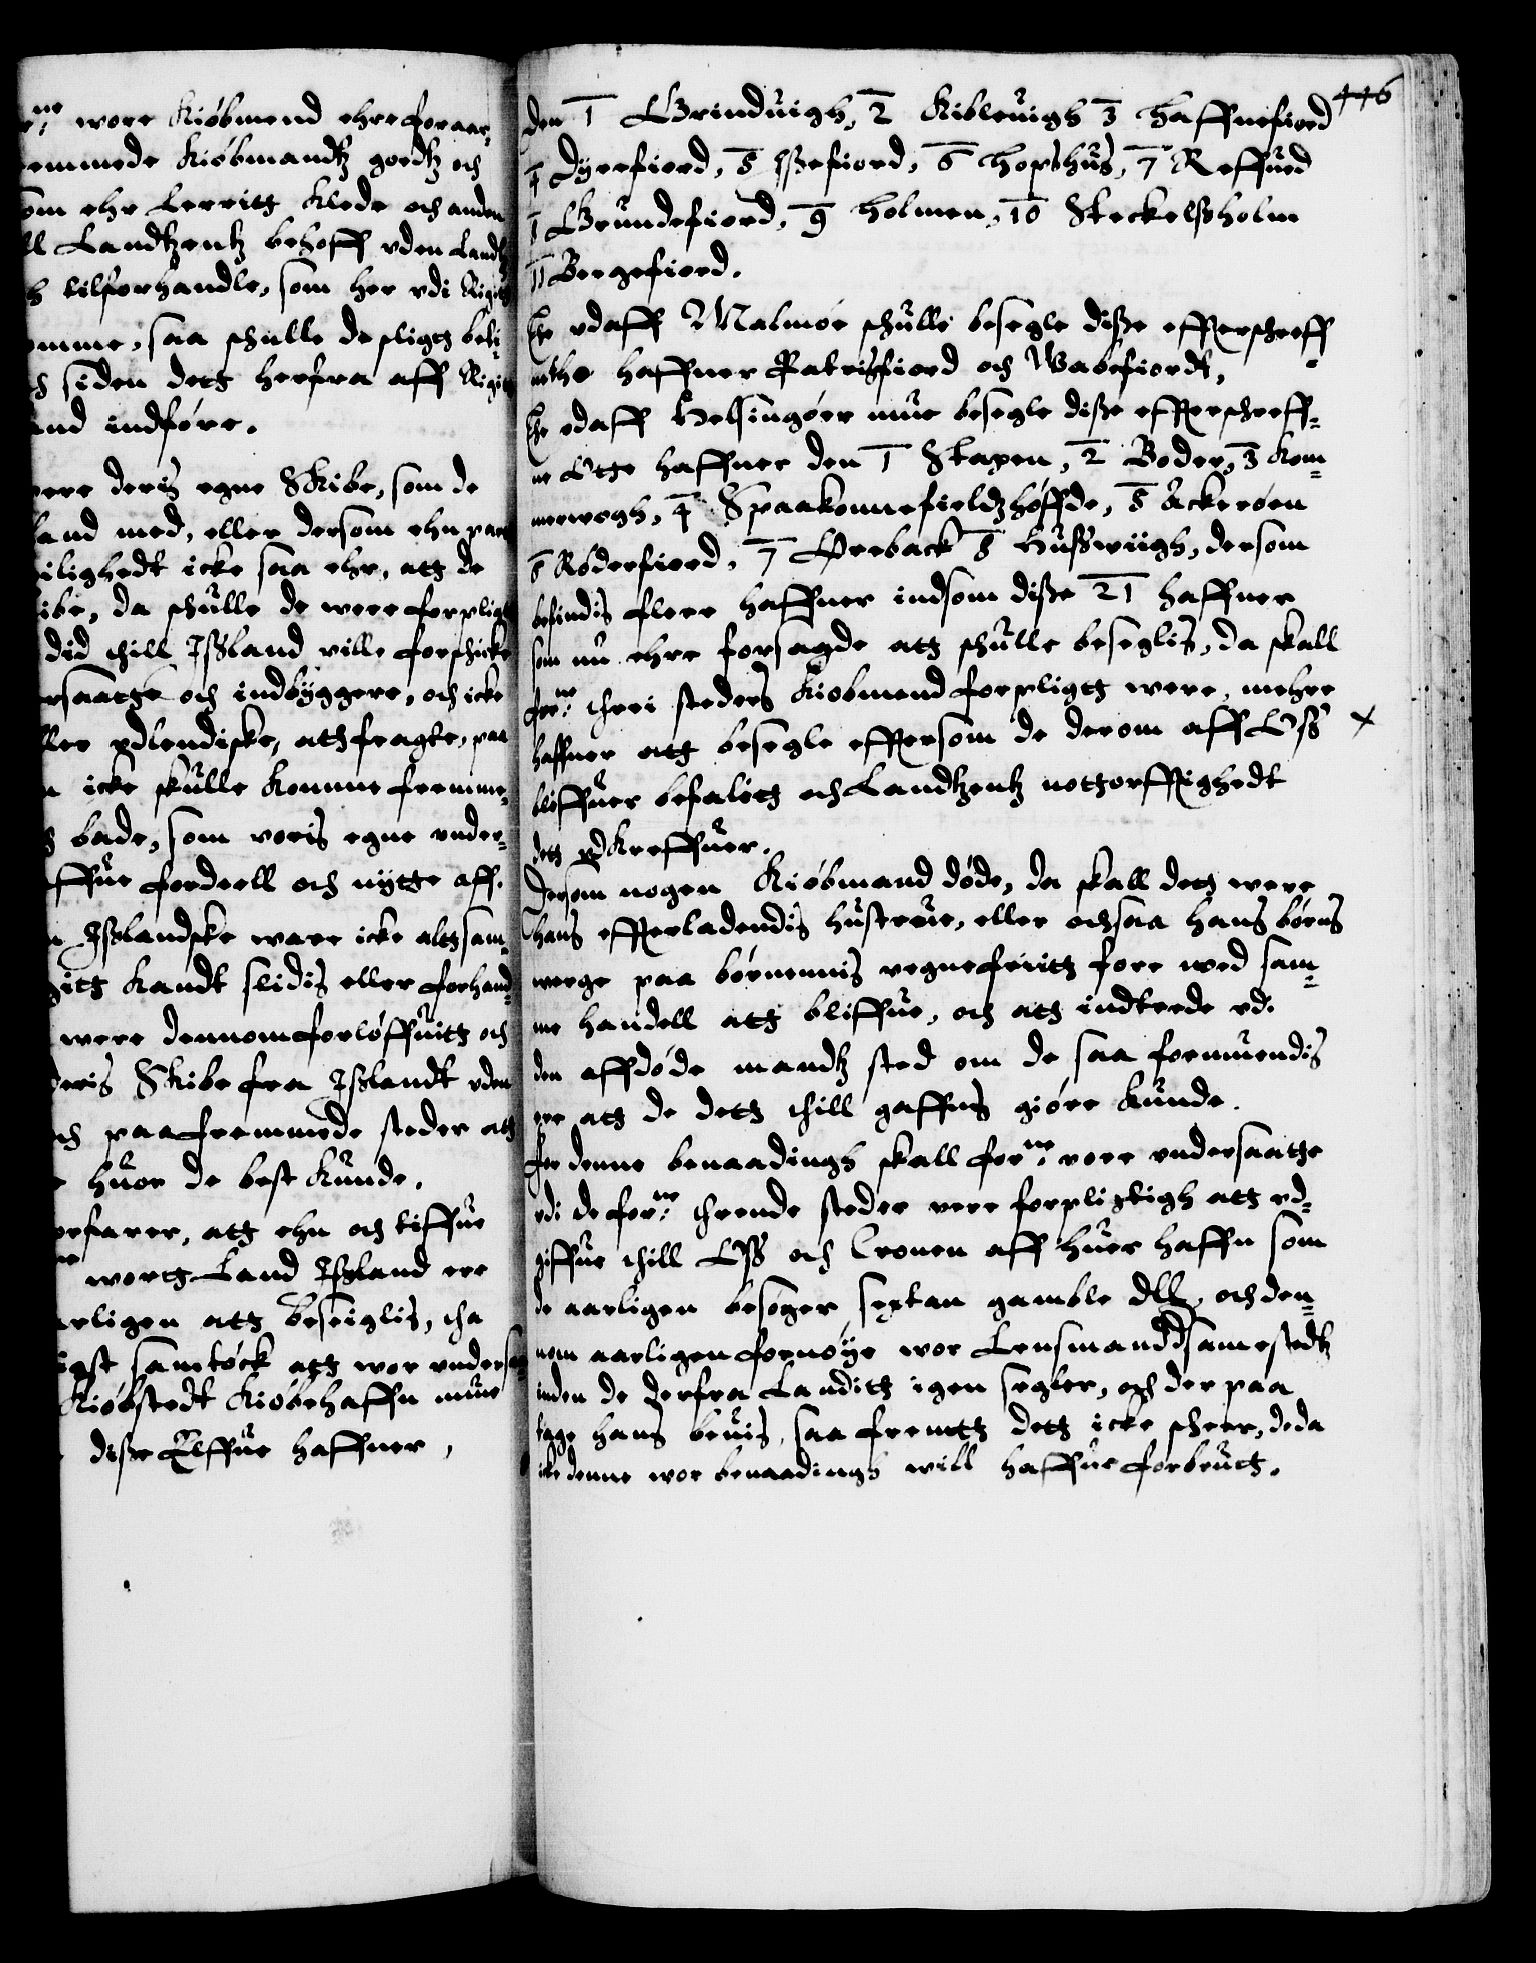 wore Kiøbmend ehre foraar¬
emmede Kiøbmandtz goedtz och
om ehr Lerritt Klede och anden
ll Landtzentz behoff vden Landtz
tilforhandle, som her vdi Rigit
omme, saa schulle de pligtt beki¬
siden dett herfra aff Rigit
and indføre.
were deris egne Skibe, som de
land med, eller dersom ehn part
eilighedt icke saa ehr, att de
kibe, da schulle de were forpligt
did thill Jsland ville forschicke
rsaatthe och indbyggere, och icke
ller vdlendiske, ath fragte, paa
icke skulle komme fremme¬
bade, som voris egne under¬
affue fordeell och nytte aff.
Jslandske ware icke alt sam¬
gitt kandt slidis eller forhand¬
were dennom forløffuitt och
deris Skibe fra Jslandt vden
och paa fremmede steder att
huor de best kunde.
erfarer, att ehn och tiffue
wortt Land Jsland ere
arligen att beseiglis, tha
gst samtøck att wor vndersa¬
Kiøbstedt Kiøbehaffn mue
disse Elffue haffner,
446
den 1 Grinduigh, 2 Kibleuigh 3 Haffnefiord
4 Dyrefiord, 5 Issefiord, 6 Hopshus, 7 Reffued
8 Grundefiord, 9 Holmen, 10 Steckelssholm
11 Bergefiord.
The vdaff Malmøe schulle besegle disse effterschreff¬
nthe haffner Patrisfiord och Wabefiordt,
The vdaff Helsingøer mue besegle disse effterschreff¬
ne Otte haffner den 1 Stapen, 2 Boder, 3 Kom¬
merwogh, 4 Spaakonnefieldtzhøffde, 5 Ackerøen
6 Roderfiord, 7 Øreback 8 Husswiigh, dersom
befindis flere haffner indsom disse 21 haffner
som nu ehre forsagde att schulle beseglis, da skall
forne threi steders Kiøbmend forpligtt were, mehre
haffner att besegle effersom de derom aff Oss
bliffuer befalitt och Landtzentz nøttorfftighedt
dett vdkreffuer.
Dersom nogen Kiøbmand døde, da skall dett were
hans effterladendis hustrue, eller ochsaa hans børns
werge paa børnennis vegne friitt fore wed sam¬
me handell att bliffue, och att indtrede vdi
den affdøde mandtz sted om de saa formuendis
ere att de dett thill gaffns giøre kunde.
For denne benaadingh skall forne vore vndersaatthe
vdi de forne thrende steder vere forpligtigh att vd¬
giffue thill Oss och Cronen aff huer haffn som
de aarligen besøger sextan gamble dlr, och den¬
nom aarligen fornøye wor Lensmand samestedtz
inden de derfra Landitt igen segler, och der paa
tage hans beuis, saa fremtt dett icke scheer, de da
icke denne wor benaadingh will haffue forbrutt.